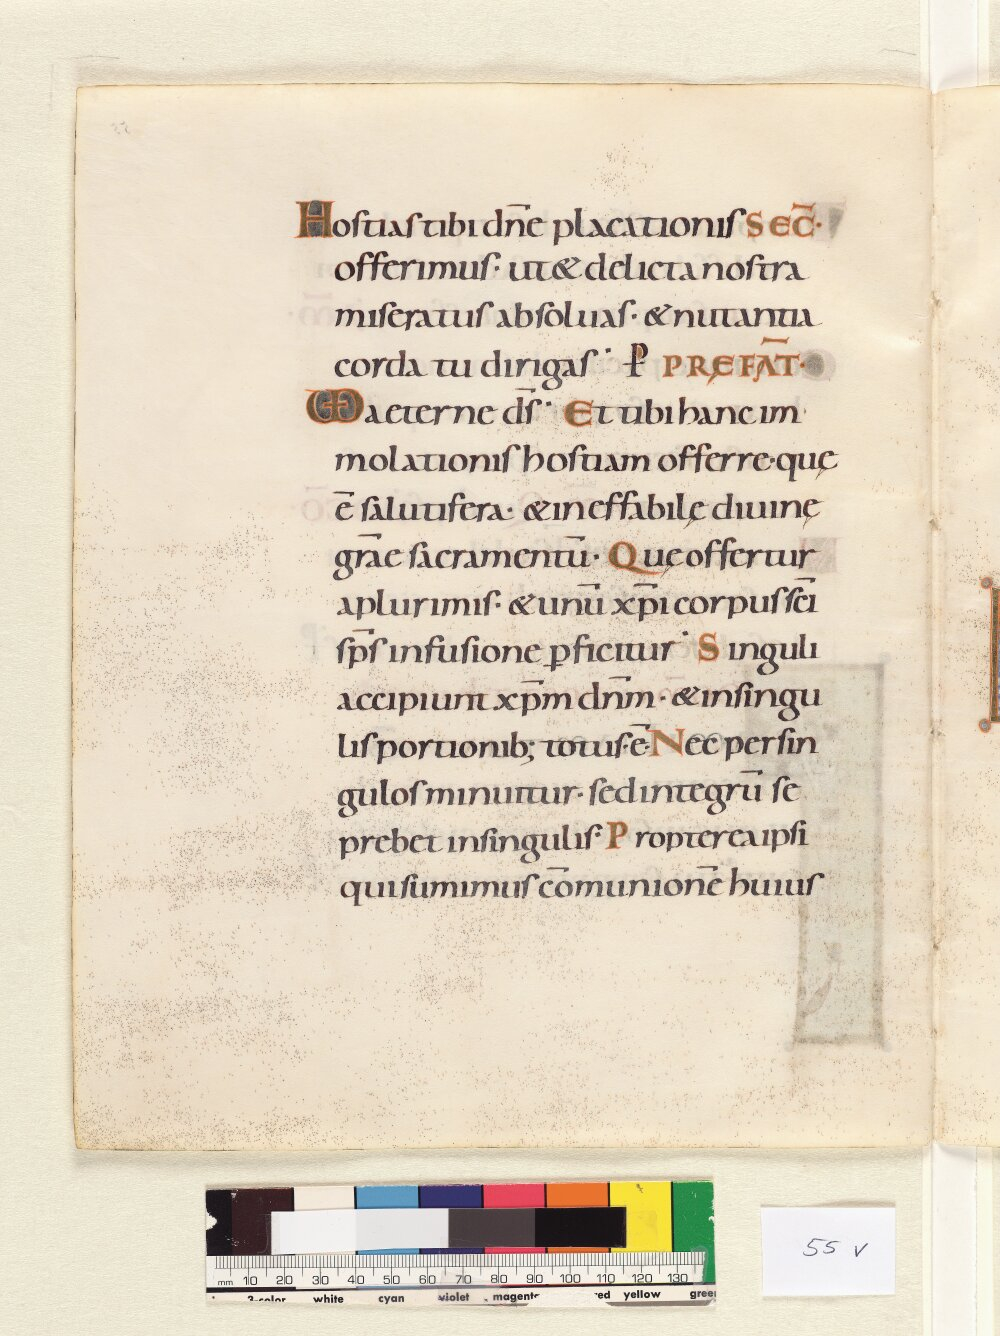 Hostias tibi dn̄e placationis SEC̄·
offerimus· ut & delicta nostra
miseratus absoluas· & nutantia
corda tu dirigas· P PREFAT̄·
VD aeterne dS̄· Et tibi hanc im
molationis hostiam offerre· quę
ē salutifera· & ineffabilę diuinę
grāe sacramentū· Quę offertur
aplurimis· & unū xp̄i corpus scī
sp̄s infusione ꝑficitur· Singuli
accipiunt xp̄m dnm̄· & insingu
lis portionib; totus·ē· Nec per sin
gulos minuitur· sed integrū se
prebet insingulis· Propterea ipsi
qui sumimus cōmunionē huius
mm 10 20 30 40 50 60 70 80 90 100 110 120 130
3-color white cyan violet magenta red yellow green
55 v